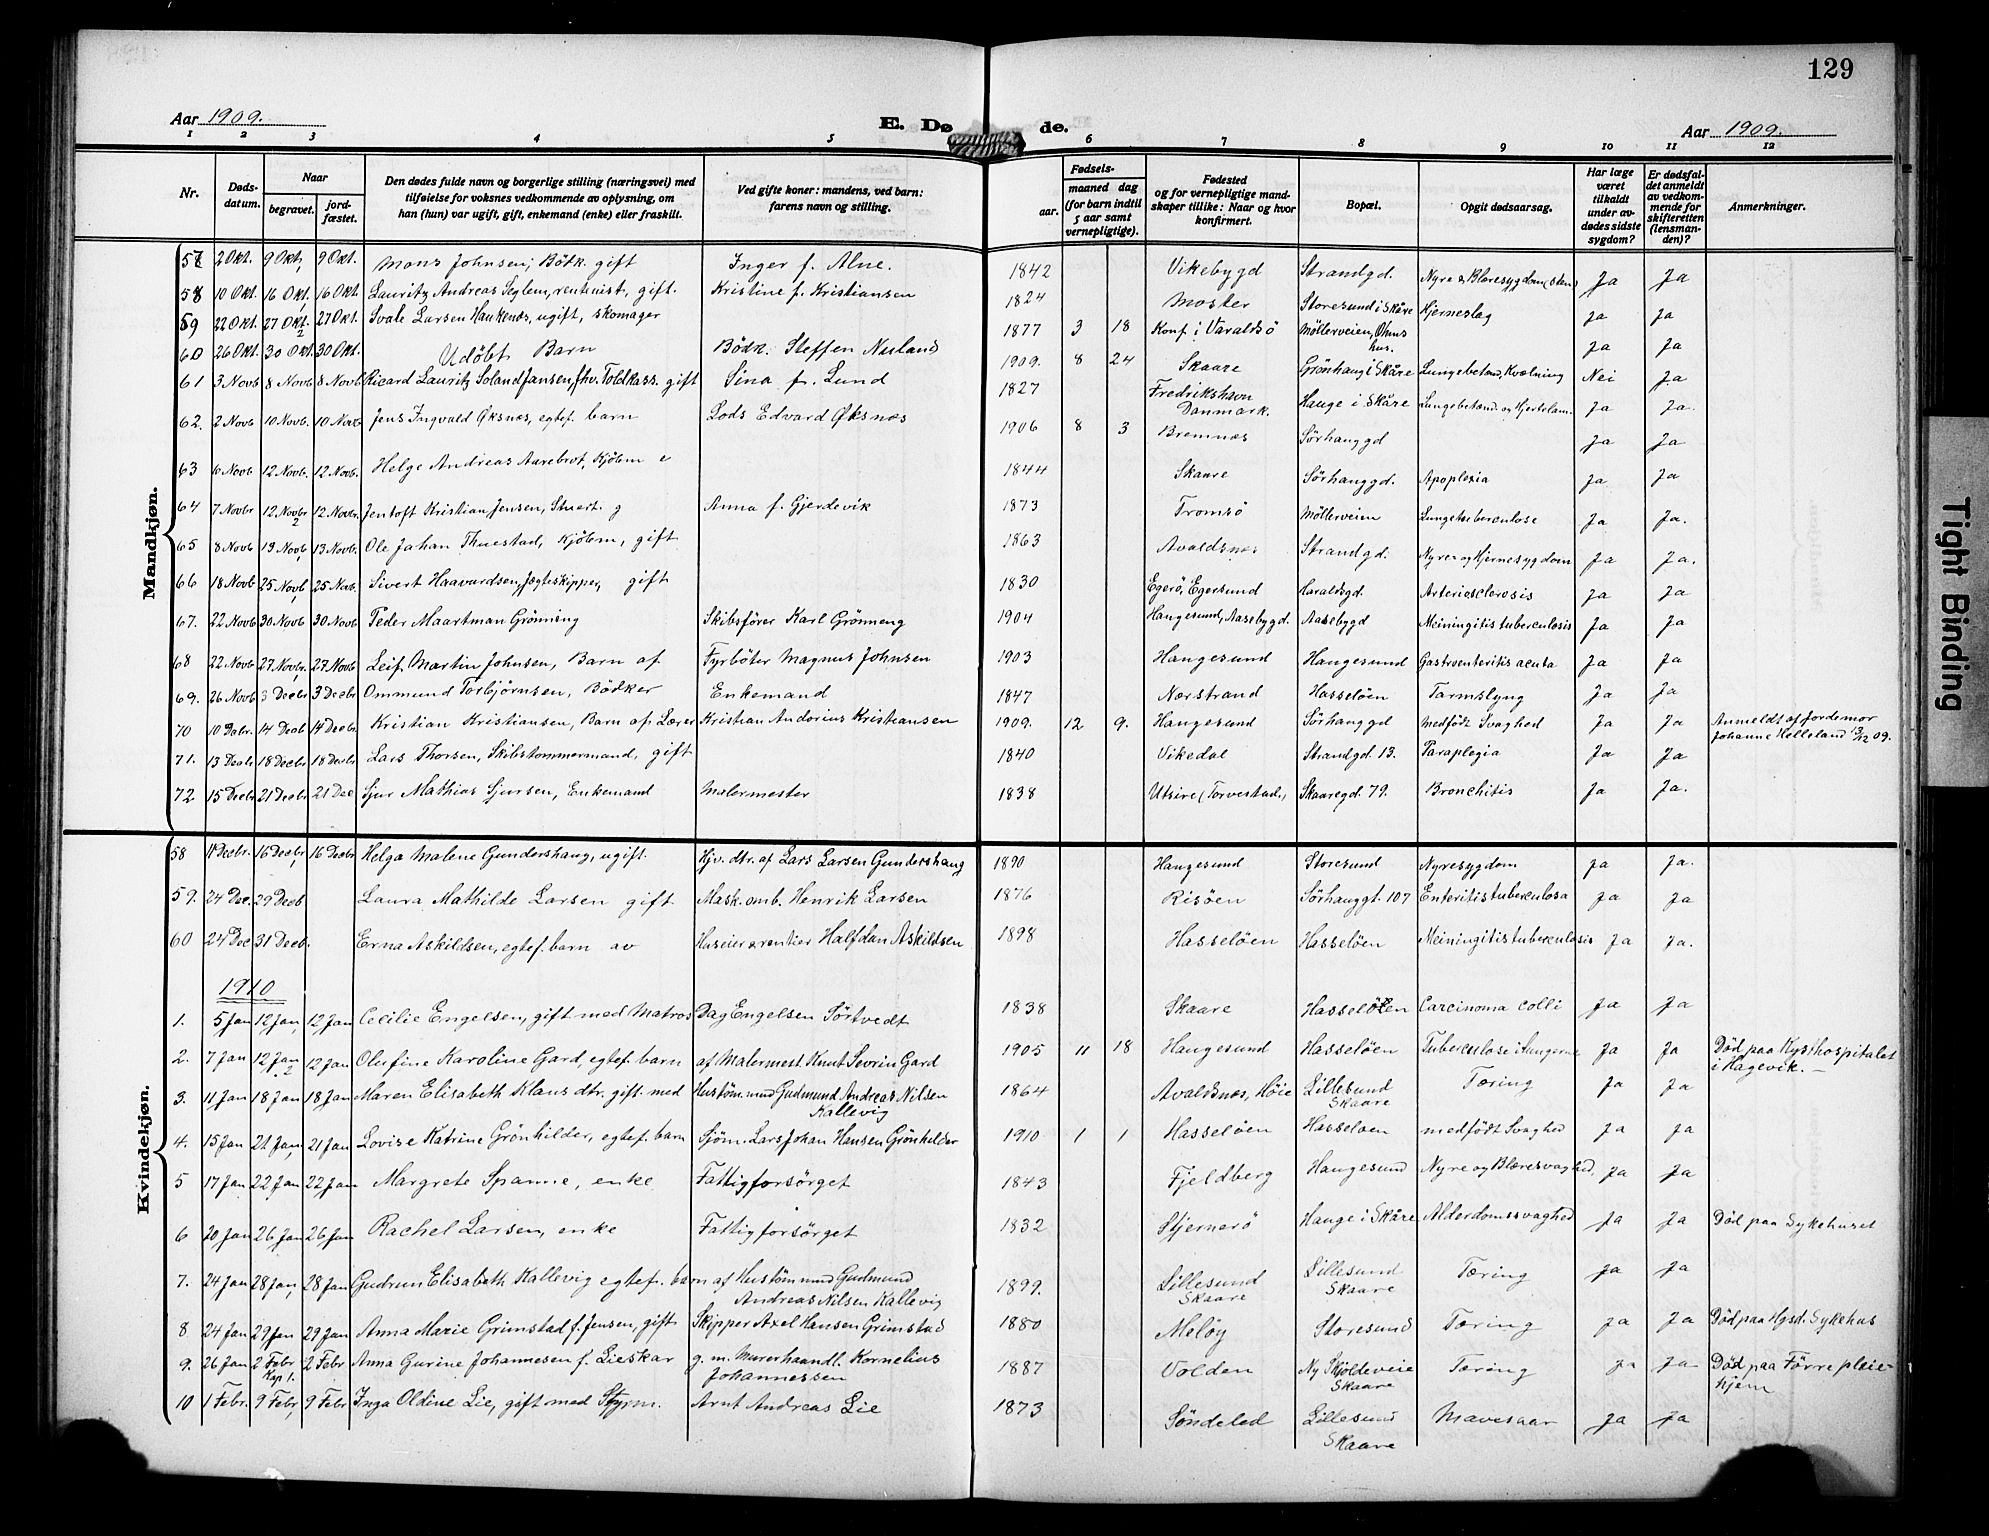 129
Aar 1909.
E. Døde.
Aar 1909.
1 2 3 4 5 6 7 8 9 10 11 12
Nr.
Døds-
datum.
Naar
begravet.
jord-
fæstet.
Den dødes fulde navn og borgerlige stilling (næringsvei) med
tilføielse for voksnes vedkommende av oplysning, om
han (hun) var ugift, gift, enkemand (enke) eller fraskilt.
Ved gifte koner: mandens, ved barn:
farens navn og stilling.
Fødsels-
aar.
maaned dag
(for barn indtil
5 aar samt
vernepligtige).
Fødested
og for vernepligtige mand-
skaper tillike: Naar og hvor
konfirmert.
Bopæl.
Opgit dødsaarsag.
Har læge
været
tilkaldt
under av-
dødes sidste
sygdom?
Er dødsfal-
det anmeldt
av vedkom-
mende for
skifteretten
(lensman-
den)?
Anmerkninger.
Mandkjøn.
57 2 Okt. 9 Okt. 9 Okt. Mons Johnsen, Bödk. gift Inger f. Alne. 1842 Vikebygd Strandgd. Nyre & Blæresygdom (sten) Ja Ja
58 10 Okt. 16 Okt. 16 Okt Lauritz Andreas Seglem, rentenist, gift. Kristine f. Kristiansen 1824 Moster Storesund i Skåre Hjerneslag Ja Ja
59 22 Okt. 27 Okt. 27 Okt. Svale Larsen Haukenæs, ugift, skomager 1877 3 18 Konf. i Varaldsö Möllerveien, hus. Ja Ja
60 26 Okt. 30 Okt. 30 Okt. Udöbt Barn Bödk. Steffen Nesland 1909. 8 24 Skaare Grönhaug i Skåre Lungebetænd, Kvælning Nei Ja
61 3 Novb 8 Novb 8 Novb Ricard Lauritz Soland Jansen, fhv. Toldkass. gift Sina f. Lund 1827 Fredrikshavn Danmark. Hauge i Skåre Lungebetænd. og Hjertelam. Ja Ja.
62. 2 Novb 10 Novb. 10 Novb Jens Ingvald Øksnæs, egtef. barn Lods Edvard Øksnæs 1906 8 3 Bremnæs Sörhauggd Ja Ja
63 6 Novb 12 Novb. 12 Novb. Helge Andreas Aarebrot, Kjöbm e 1844 Skaare Sörhauggd. Apoplexia Ja Ja
64 7 Novbr 12 Novbr 12 Novbr. Jentoft Kristian Jensen, Stuert. g Anna f. Gjerdevik 1873 Tromsö Möllerveien Lungetuberculose Ja Ja.
65 8 Novb 13 Novb 13 Novbr. Ole Johan Thuestad, Kjöbm, gift 1863 Avaldsnes Strandgd. Nyre og Hjernesygdom Ja Ja.
66 18 Novb 25 Novb 25 Novb. Sivert Haavardsen, Jægteskipper, gift 1830 Egerö, Egersund Haraldsgd. Arteriosclerosis Ja Ja
67. 22 Novb 30 Novb 30 Novb Peder Maartman Grönneng Skibsförer Karl Grönneng 1904 Haugesund, Aasebygd. Aasebygd Meiningitis tuberculosis Ja Ja
68 22 Novb 27 Novbr. 27 Novb Leif Martin Johnsen, Barn af Fyrböter Magnus Johnsen 1903 Haugesund Haugesund Gastroenteritis acuta Ja Ja
69. 26 Novb 3 Decbr 3 Decbr Ommund Torbjörnsen, Bödker Enkemand 1847 Nærstrand Hasselöen Tarmslyng Ja Ja
70 10 Debr. 14 Decb 14 Decbr. Kristian Kristiansen, Barn af Lærer Kristian Andorius Kristiansen 1909. 12 9. Haugesund Sörhauggd medfödt Svaghed Ja Ja Anmeldt af Jordemor
Johanne Helleland 13/12 09.
71. 13 Decbr 18 Decbr 18 Decbr Lars Thorsen, Skibstömmermand, gift 1840 Vikedal Strandgd. 13. Paraplegia Ja Ja
72 15 Decbr 21 Decbr 21 Dec Sjur Mathias Sjursen, Enkemand Malermester 1838 Utsire (Torvestad.) Skaaregd. 79. Bronchitis Ja Ja.
Kvindekjøn.
58 11 Decbr. 16 Decbr, 16 Decbr Helga Malene Gundershaug, ugift. Hjv. dtr. af Lars Larsen Gundershaug 1890 Haugesund Storesund Nyresygdom Ja Ja.
59. 24 Dec. 29 Decb Laura Mathilde Larsen gift Mask. omb. Henrik Larsen 1876 Risöen Sörhauggt. 107 Enteritis tuberculosa Ja Ja
60 24 Dec 31 Decb. Erna Askildsen, egtef. barn av Huseier & rentier Halfdan Askildsen 1898 Hasselöen Hasselöen Meiningitis tuberculosis Ja Ja.
1910
1. 5 Jan 12 Jan, 12 Jan Cecilie Engelsen, gift med Matros Dag Engelsen Sörtvedt 1838 Skaare Hasselöen Carcinoma colli Ja Ja
2. 7 Jan 12 Jan 12 Jan Olufine Karoline Gard, egtef. barn af Malermest. Knut Sevrin Gard 1905 11 18 Haugesund Hasselöen Tuberculose i Lungerne Ja Ja Död paa Kysthospitalet
i Hagevik.
3. 11 Jan 18 Jan 18 Jan Maren Elisabeth Klaus dtr. gift med Hustömmnd Gudmund Andreas Nilsen
Kallevig 1864 Avaldsnes, Höie Lillesund
Skaare Tæring Ja Ja
4. 15 Jan 21 Jan, 21 Jan Lovise Katrine Grönhilder, egtef. barn Sjöm. Lars Johan Hansen Grönhilder 1910 1 1 Hasselöen Hasselöen medfödt Svaghed Ja Ja
5 17 Jan 22 Jan 22 Jan Margrete Spanne, enke Fattigforsörget 1843 Fjeldberg Haugesund Nyre og Blæresvaghed Ja Ja
6 20 Jan 26 Jan 26 Jan Rachel Larsen, enke Fattigforsörget 1832 Stjernerö Hauge i Skåre Alderdomssvaghed Ja Ja Död paa Sykehuset
7. 24 Jan 28 Jan, 28 Jan Gudrun Elisabeth Kallevig egtef. barn af Hustömmnd Gudmund
Andreas Nilsen Kallevig 1899. Lillesund
Skaare Lillesund
Skaare Tæring Ja Ja
8 24 Jan 29 Jan 29 Jan Anna Marie Grimstad f. Jensen, gift Skipper Axel Hansen Grimstad 1880 Meløy Storesund Tæring Ja Ja Död paa Hgsd. Sykehus
9. 26 Jan 2 Febr Kap 1. 2 Febr Anna Gurine Johannesen f. Lieskar g. m. Murerhaandl. Kornelius
Johannessen 1887 Volden Ny Skjoldeveie
Skaare Tæring Ja Ja Död paa Förre pleie-
hjem
10 1 Febr. 9 Febr, 9 Febr Inga Oldine Lie, gift med Styrm. Arnt Andreas Lie 1873 Söndeled Lillesund
Skaare Mavesaar Ja Ja
Tight Binding